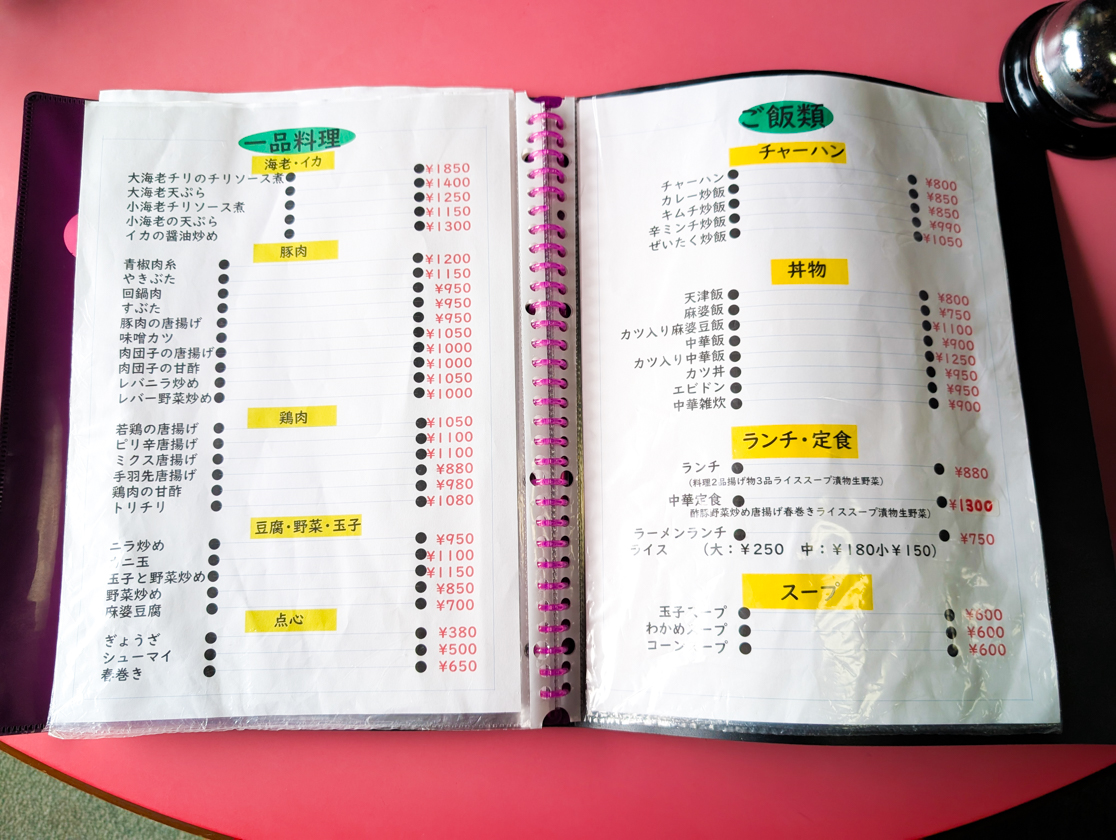 一品料理
海老・イカ
大海老チリのチリソース煮 ¥1850
大海老天ぷら ¥1400
小海老チリソース煮 ¥1250
小海老の天ぷら ¥1150
イカの醤油炒め ¥1300
豚肉
青椒肉糸 ¥1200
やきぶた ¥1150
回鍋肉 ¥950
すぶた ¥950
豚肉の唐揚げ ¥950
味噌カツ ¥1050
肉団子の唐揚げ ¥1000
肉団子の甘酢 ¥1000
レバニラ炒め ¥1050
レバー野菜炒め ¥1000
鶏肉
若鶏の唐揚げ ¥1050
ピリ辛唐揚げ ¥1100
ミクス唐揚げ ¥1100
手羽先唐揚げ ¥880
鶏肉の甘酢 ¥980
トリチリ ¥1080
豆腐・野菜・玉子
ニラ炒め ¥950
ニ玉 ¥1100
玉子と野菜炒め ¥1150
野菜炒め ¥850
麻婆豆腐 ¥700
点心
ぎょうざ ¥380
シューマイ ¥500
春巻き ¥650
ご飯類
チャーハン
チャーハン ¥800
カレー炒飯 ¥850
キムチ炒飯 ¥850
辛ミンチ炒飯 ¥990
ぜいたく炒飯 ¥1050
丼物
天津飯 ¥800
麻婆飯 ¥750
カツ入り麻婆豆飯 ¥1100
中華飯 ¥900
カツ入り中華飯 ¥1250
カツ丼 ¥950
エビドン ¥950
中華雑炊 ¥900
ランチ・定食
ランチ ¥880
(料理2品揚げ物3品ライススープ漬物生野菜)
中華定食 ¥1300
酢豚野菜炒め唐揚げ春巻きライススープ漬物生野菜)
ラーメンランチ ¥750
ライス (大:¥250 中:¥180小¥150)
スープ
玉子スープ ¥600
わかめスープ ¥600
コーンスープ ¥600